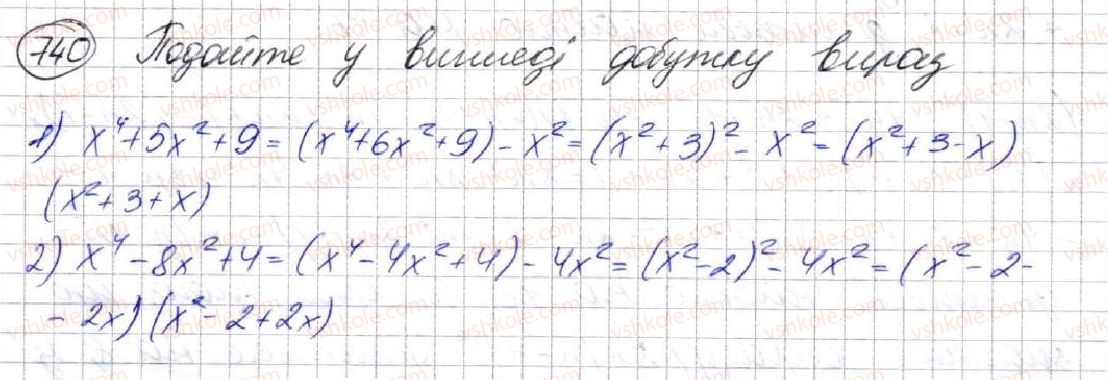 740 Подайте у вигляді добутку вираз
1) x⁴+5x²+9=(x⁴+6x²+9)-x²=(x²+3)²-x²=(x²+3-x)
(x²+3+x)
2) x⁴-8x²+4=(x⁴-4x²+4)-4x²=(x²-2)²-4x²=(x²-2-
-2x)(x²-2+2x)